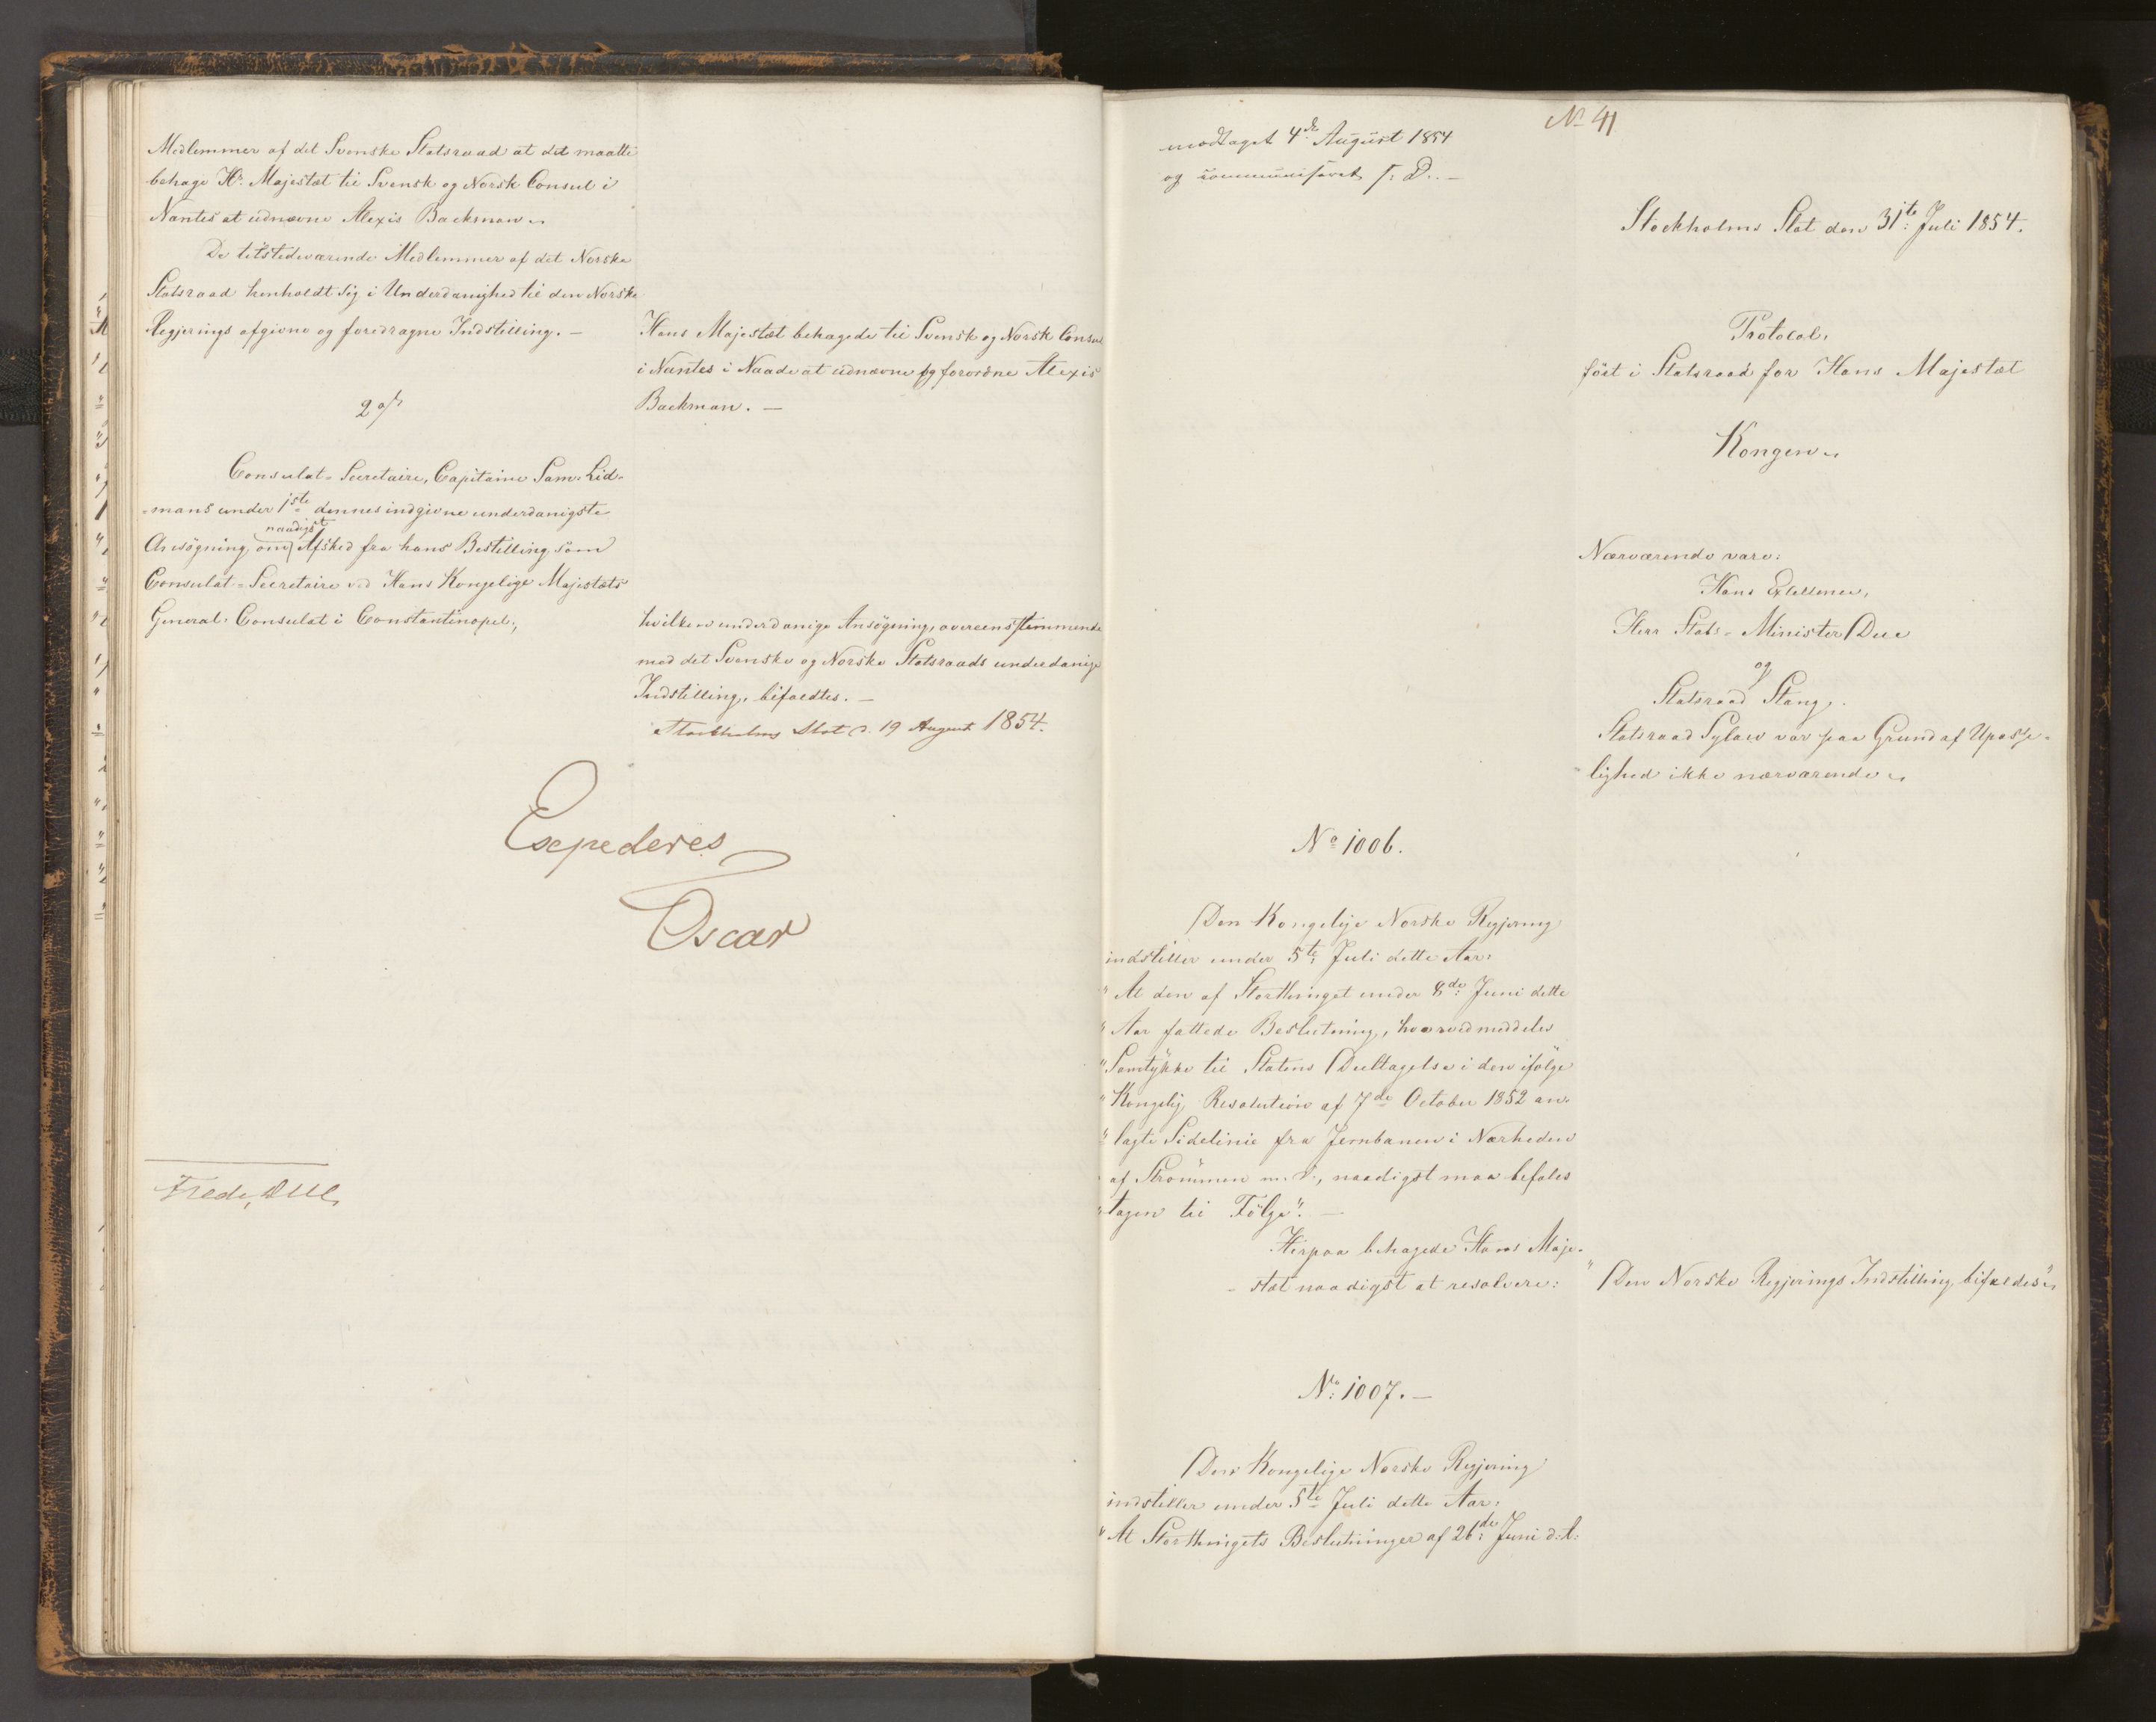 Medlemmer af det Svenske Statsraad at det maatte
behage Hs. Majestæt til Svensk og Norsk Consul i
Nantes at udnævne Alexis Backman.
De tilstedeværende Medlemmer af det Norske
Statsraad henholdt sig i Underdanighed til den Norske
Regjerings afgivne og foredragne Indstilling. —
Hans Majestæt behagede til Svensk og Norsk Consul
i Nantes i Naade at udnævne og forordne Alexis
Backman. —
2o/
Consulat-Secretaire, Capitaine Sam. Lid-
-mans under 1ste dennes indgivne underdanigste
naadigst
Ansögning om Afsked fra hans Bestilling som
Consulat-Secretaire ved Hans Kongelige Majestæts
General-Consulat i Constantinopel,
hvilken underdanige Ansögning, overeensstemmende
med det Svenske og Norske Statsraads underdanige
Indstilling, bifaldtes. —
Stockholms Slot d. 19 August 1854.
Expederes
Oscar
Fredr. Due
modtaget 4de August 1854
og communiseret s: D. —
No 41
Stockholms Slot den 31te Juli 1854.
Protocol,
fört i Statsraad for Hans Majestæt
Kongen.
Nærværende vare:
Hans Exellence,
Herr Stats-Minister Due
og
Statsraad Stang.
Statsraad Sylow var paa Grund af Upasse-
lighed ikke nærværende.
No 1006.
Den Kongelige Norske Regjering
indstiller under 5te Juli dette Aar:
"At den af Storthinget under 8de Juni dette
"Aar fattede Beslutning, hvorved meddeles
"Samtykke til Statens Deeltagelse i den ifölge
"Kongelig Resolution af 7de October 1852 an-
"lagte Sidelinie fra Jernbanen i Nærheden
"af Strömmen m. V., naadigst maa befales
"tagen til Fölge". —
Herpaa behagede Hans Maje-
-stæt naadigst at resolvere:
"Den Norske Regjerings Indstilling bifaldes".
No 1007. —
Den Kongelige Norske Regjering
indstiller under 5te Juli dette Aar:
"At Storthingets Beslutninger af 26de Juni d: A: